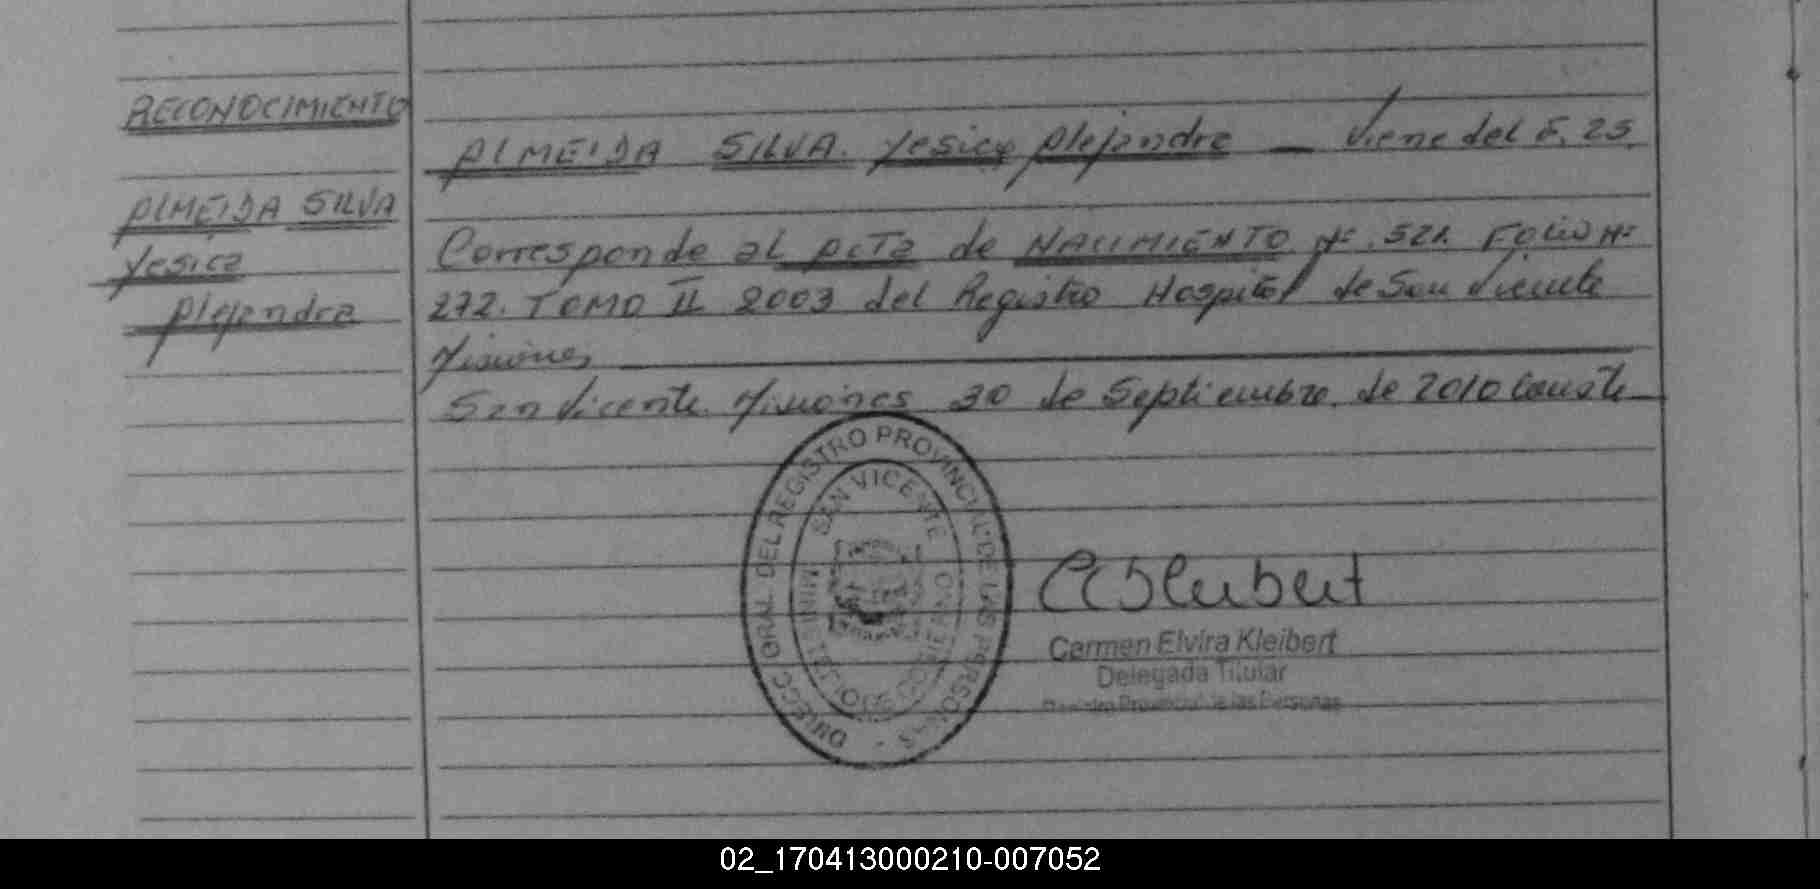 RECONOCIMIENTO
ALMEIDA SILVA
Yesica
Alejandra
ALMEIDA SILVA. Yesica Alejandra — Viene del F. 25.
Corresponde al Acta de NACIMIENTO Nº 521. FOLIO Nº
272. TOMO II 2003 del Registro Hospital de San Vicente
Misiones
San Vicente. Misiones 30 de Septiembre de 2010 Conste
DIRECC. GRAL. DEL REGISTRO PROVINCIAL DE LAS PERSONAS -
SAN VICENTE
MINISTERIO DE GOBIERNO
CEKleibert
Carmen Elvira Kleibert
Delegada Titular
Registro Provincial de las Personas
02_170413000210-007052